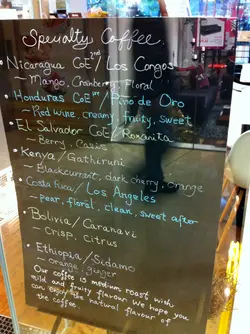 Specialty Coffee.
• Nicaragua CoE 2nd / Los Congos
– Mango, Cranberry, Floral
• Honduras CoE / Pino de Oro
– Red wine, creamy, fruity, sweet
• El Salvador CoE / Rosanita
– Berry, Casis
• Kenya / Gathiruni
– Blackcurrant, dark cherry, orange
• Costa Rica / Los Angeles
– pear, floral, clean, sweet after
• Bolivia / Caranavi
– crisp, citrus
• Ethiopia / Sidamo
– orange, ginger
Our coffee is medium roast with
mild and fruity flavour. We hope you
can enjoy the natural flavour of
the coffee.